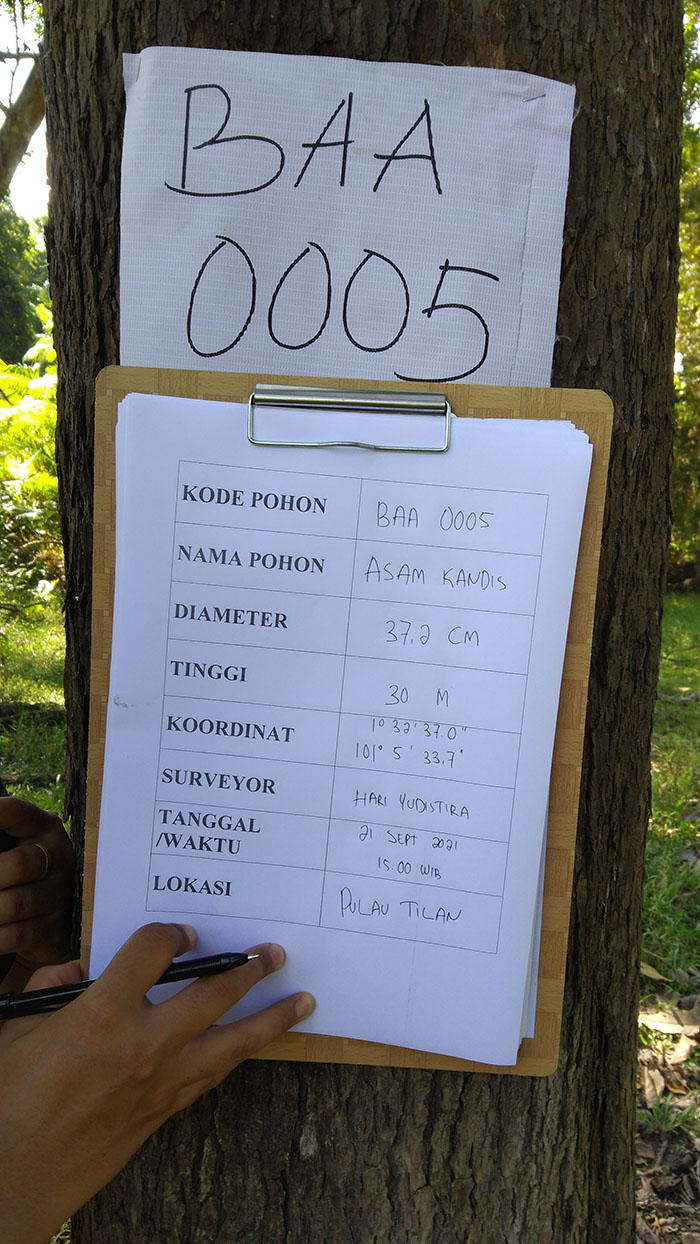 BAA
0005
KODE POHON BAA 0005
NAMA POHON ASAM KANDIS
DIAMETER 37,2 CM
TINGGI 30 M
KOORDINAT 1° 32' 37.0"
101° 5' 33.7"
SURVEYOR HARI YUDISTIRA
TANGGAL 21 SEPT 2021
/WAKTU 15.00 WIB
LOKASI PULAU TILAN